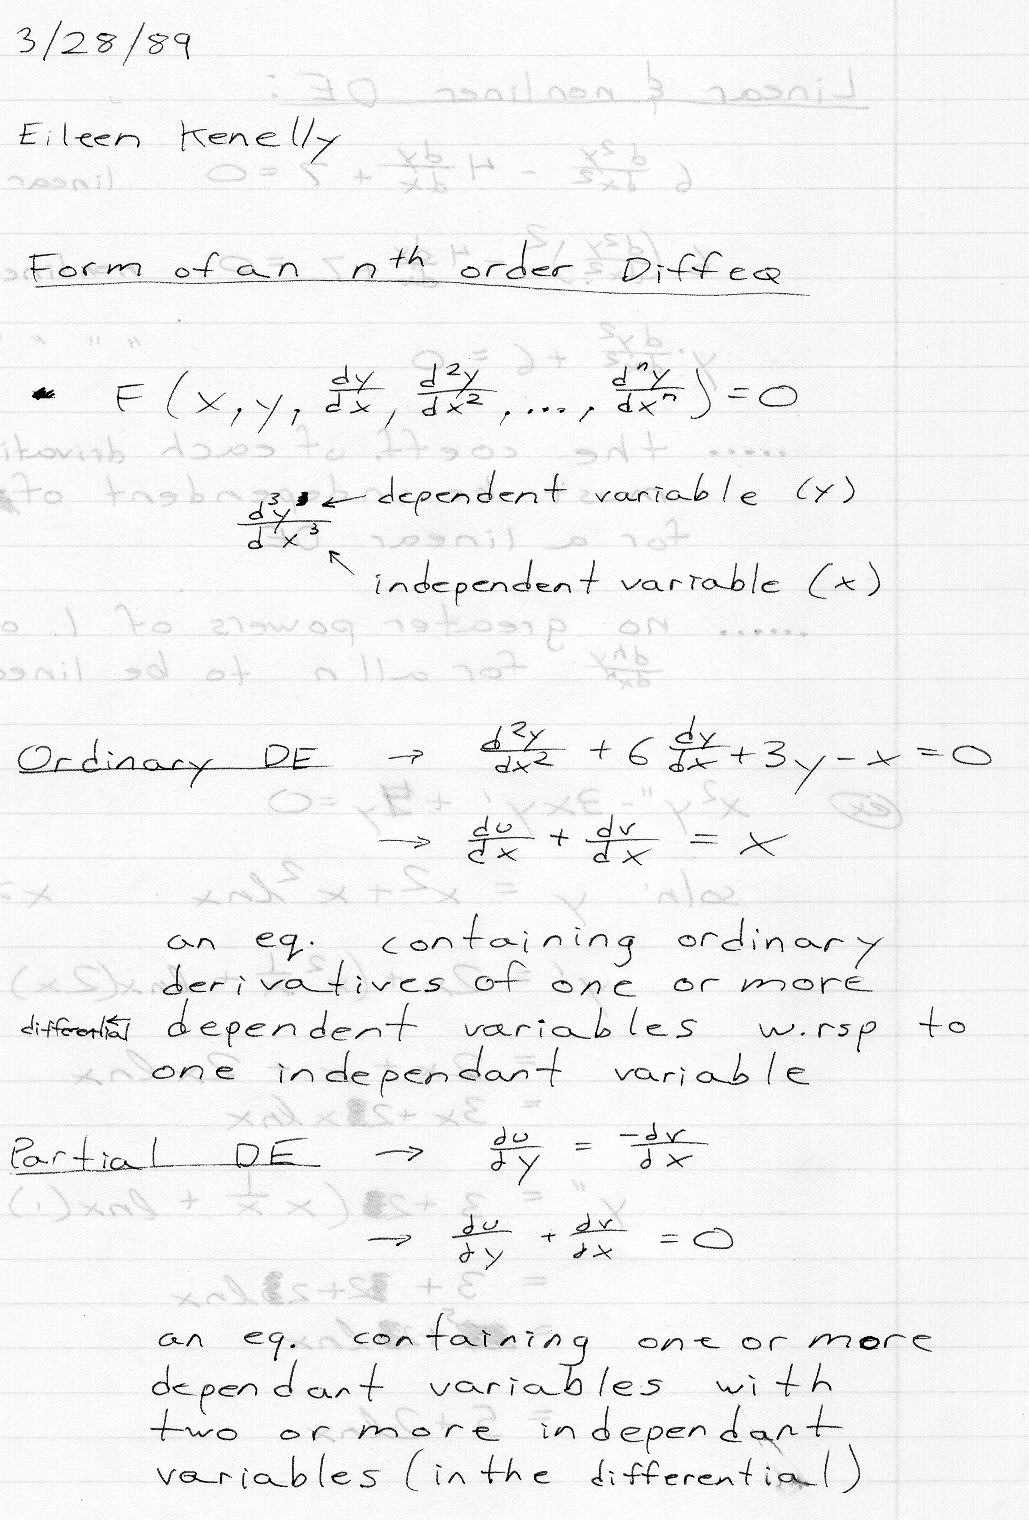 3/28/89
Eileen Kenelly
Form of an nth order Diffeq
F(x, y, dy/dx, d²y/dx², ..., dⁿy/dxⁿ) = 0
d³y/dx³ ← dependent variable (y)
↖ independent variable (x)
Ordinary DE → d²y/dx² + 6 dy/dx + 3y - x = 0
→ du/dx + dv/dx = x
an eq. containing ordinary
derivatives of one or more
differential dependent variables w.rsp to
one independant variable
Partial DE → du/dy = -dv/dx
→ du/dy + dv/dx = 0
an eq. containing one or more
dependant variables with
two or more independant
variables (in the differential)